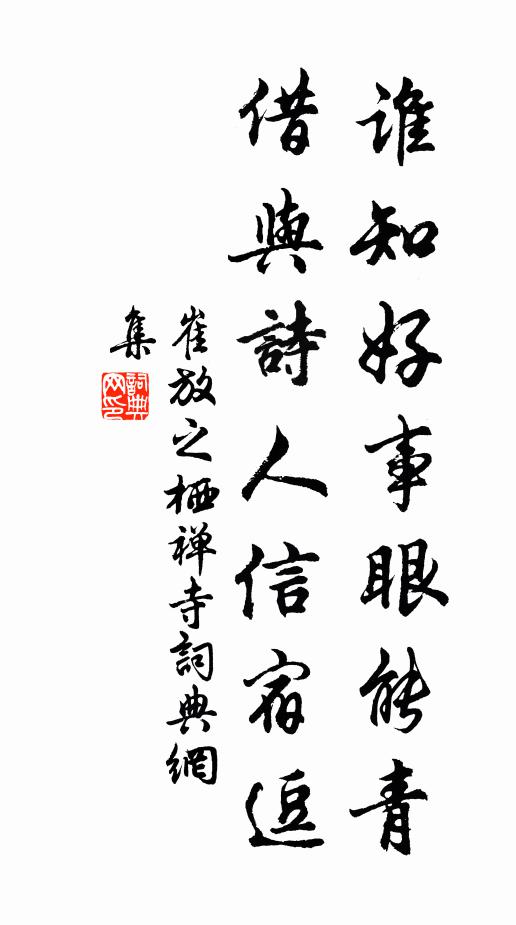 誰知好事眼能青
借與詩人信宿逗
崔放之栖禅寺詞典網
集
詞典网印